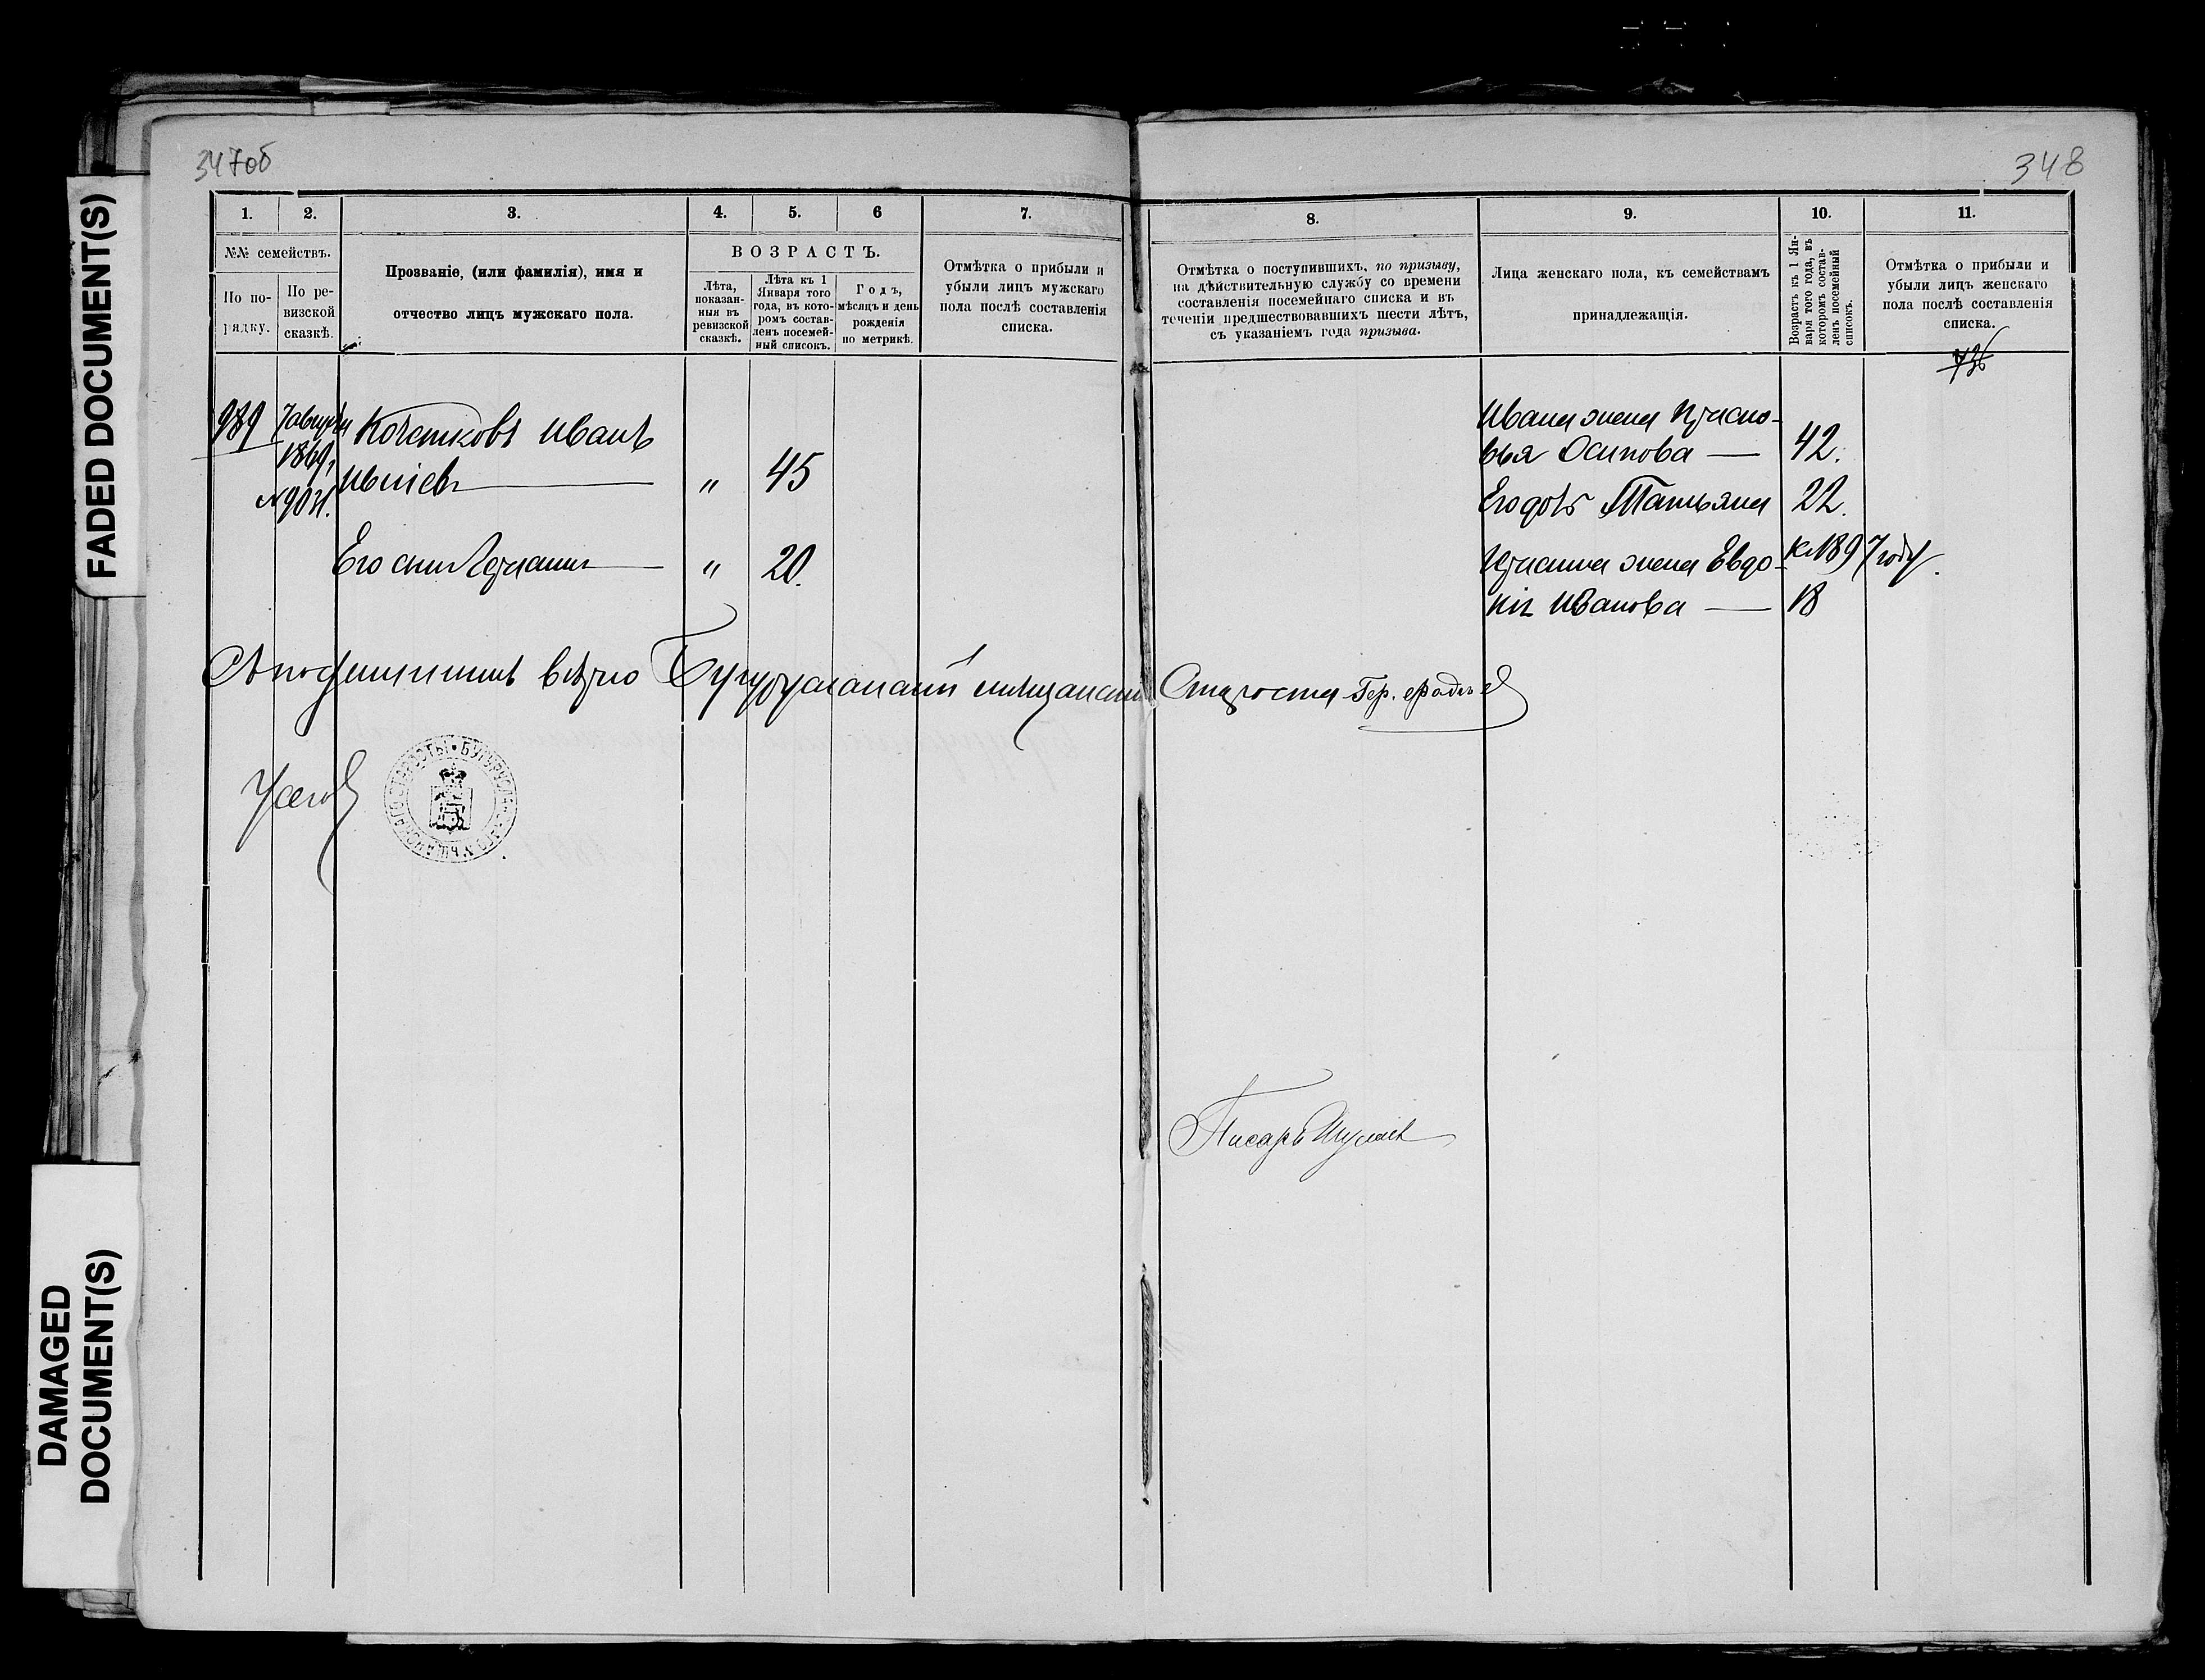 347об
348
FADED DOCUMENT(S)
DAMAGED
DOCUMENT(S)
1.
2.
3.
4.
5.
6
7.
№№ семействъ.
По по-
рядку.
По ре-
визской
сказкѣ.
Прозваніе, (или фамилія), имя и
отчество лицъ мужскаго пола.
ВОЗРАСТЪ.
Лѣта,
показан-
ныя въ
ревизской
сказкѣ.
Лѣта къ 1
Января того
года, въ кото-
ромъ состав-
ленъ посемей-
ный списокъ.
Годъ,
мѣсяцъ и день
рожденія
по метрикѣ.
Отмѣтка о прибыли и
убыли лицъ мужскаго
пола послѣ составленія
списка.
8.
9.
10.
11.
Отмѣтка о поступившихъ, по призыву,
на дѣйствительную службу со времени
составленія посемейнаго списка и въ
теченіи предшествовавшихъ шести лѣтъ,
съ указаніемъ года призыва.
Лица женскаго пола, къ семействамъ
принадлежащія.
Возрастъ къ 1 Ян-
варя того года, въ
которомъ состав-
ленъ посемейный
списокъ.
Отмѣтка о прибыли и
убыли лицъ женскаго
пола послѣ составленія
списка.
736
989
1869,
Кочетковъ Иванъ
" 45
Его сынъ " 20.
Ивана жена Праско-
вья Осипова — 42.
Его дочь Татьяна 22.
жена Евдо- к. 1897 году.
кія Иванова — 18
вѣрно Бугурусланскій мѣщанскій Староста
БУГУРУСЛАНСКАГО МѢЩАНСКАГО СТАРОСТЫ
Писарь